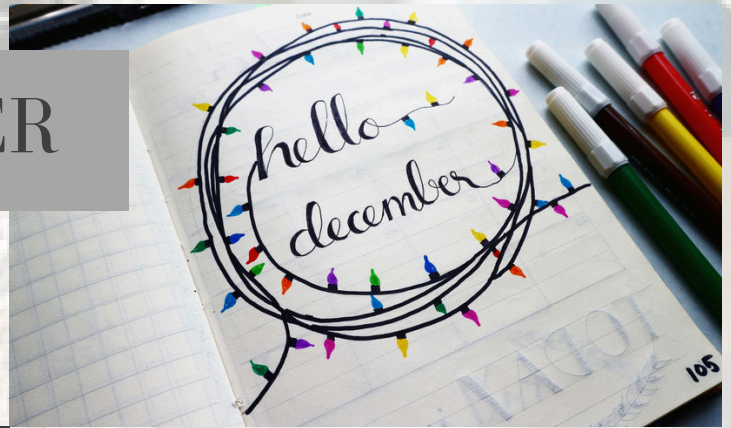 ER
hello
december
105